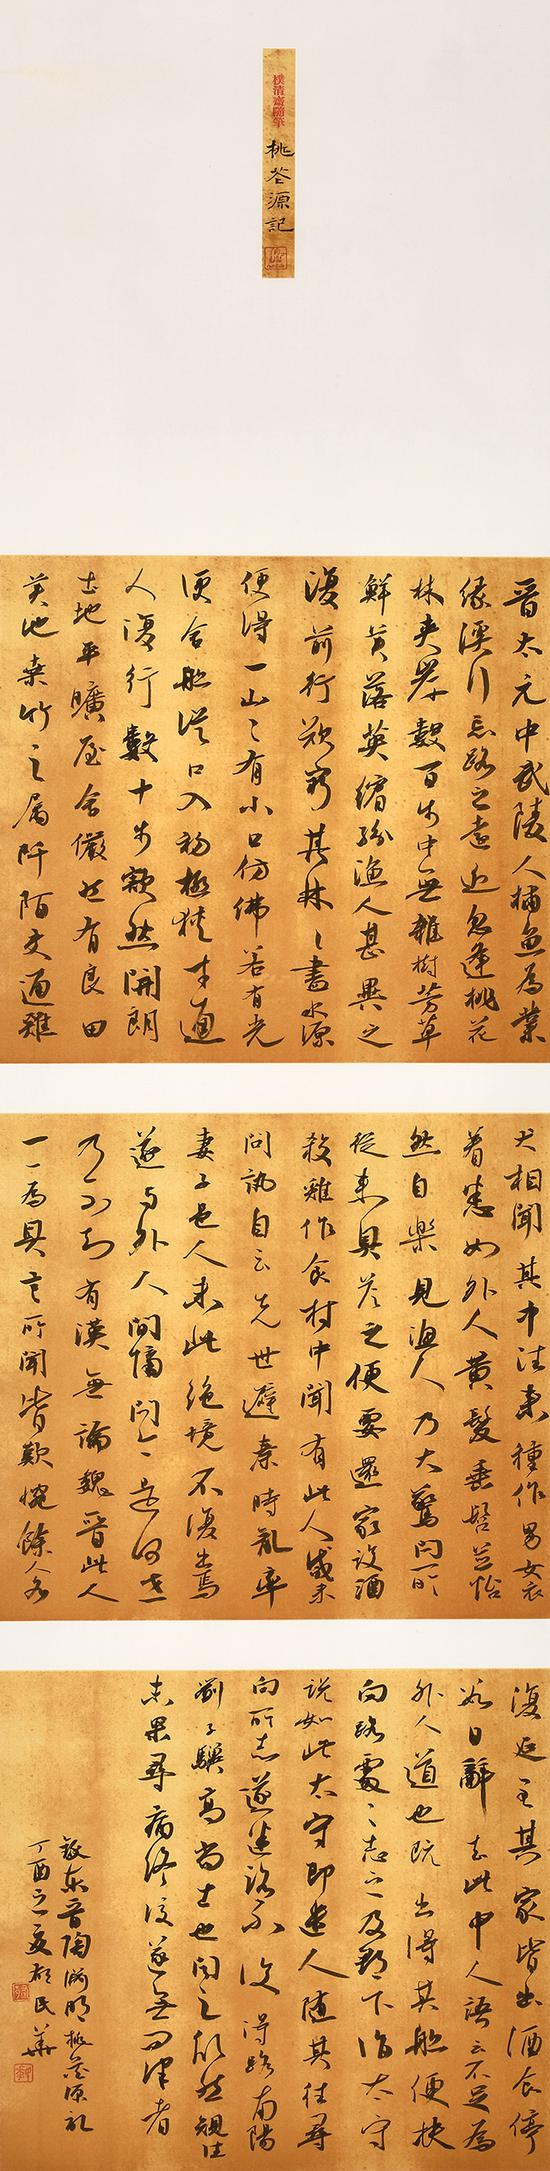 樸清齋隨筆
桃花源記
晉太元中武陵人捕魚為業
緣溪行忘路之遠近忽逢桃花
林夾岸數百步中無雜樹芳草
鮮美落英繽紛漁人甚異之
復前行欲窮其林〻盡水源
便得一山〻有小口仿佛若有光
便舍船從口入初極狹才通
人復行數十步豁然開朗
土地平曠屋舍儼然有良田
美池桑竹之屬阡陌交通雞
犬相聞其中往來種作男女衣
着悉如外人黃髮垂髫並怡
然自樂見漁人乃大驚問所
從來具答之便要還家設酒
殺雞作食村中聞有此人咸來
問訊自云先世避秦時亂率
妻子邑人來此絕境不復出焉
遂與外人間隔問今是何世
乃不知有漢無論魏晉此人
一一為具言所聞皆歎惋餘人各
復延至其家皆出酒食停
數日辭去此中人語云不足為
外人道也既出得其船便扶
向路處〻志之及郡下詣太守
說如此太守即遣人隨其往尋
向所志遂迷路不復得路南陽
劉子驥高尚士也聞之欣然規往
未果尋病終後遂無問津者
錄東晉陶淵明桃花源記
丁酉之夏民華